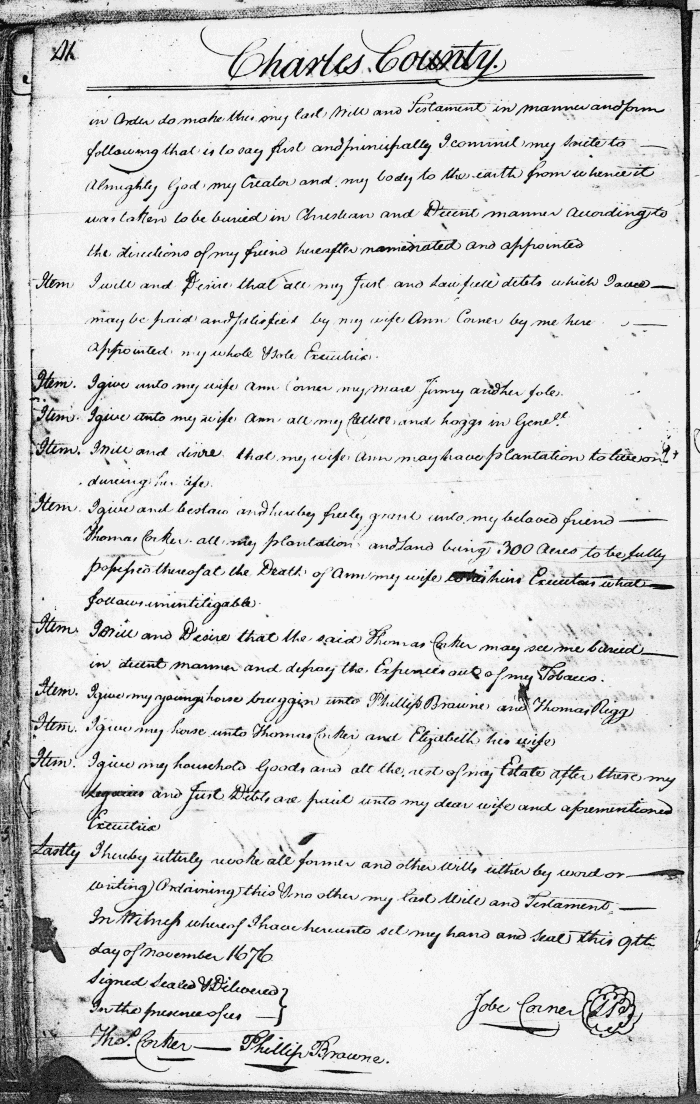 Charles County.
in Order do make this my last Will and Testament in manner and form
following that is to say first and principally I commit my Soule to
Almighty God my Creator and my body to the earth from whence it
was taken to be buried in Christian and Decent manner according to
the directions of my friend hereafter nominated and appointed
Item I will and Desire that all my Just and Lawfull debts which I owe
may be paid and satisfied by my wife Ann Corner by me here
appointed my whole & sole Executrix.
Item. I give unto my wife Ann Corner my mare Jinny and her fole.
Item. I give unto my wife Ann all my Cattell and hoggs in Genell.
Item. I will and desire that my wife Ann may have plantation to live on
during her life.
Item. I give and bestow and hereby freely grant unto my beloved friend
Thomas Corker all my plantation and Land being 300 Acres to be fully
possessed thereof at the Death of Ann my wife his Executors what
follows unintiligable.
Item. I will and Desire that the said Thomas Corker may see me buried
in decent manner and defray the Expences out of my Tobacco.
Item. I give my young horse bruggin unto Phillip Browne and Thomas Rigg
Item. I give my horse unto Thomas Corker and Elizabeth his wife
Item. I give my household Goods and all the rest of my Estate after these my
Legacies and Just Debts are paid unto my dear wife and aforementioned
Executrix
Lastly I hereby utterly revoke all former and other Wills either by word or
writing Ordaining this & no other my last Will and Testament,
In Witness whereof I have hereunto set my hand and Seal this 9th
day of November 1676
Signed Sealed & Delivered
In the presence of us
Jobe Corner
Thos. Corker Phillip Browne.